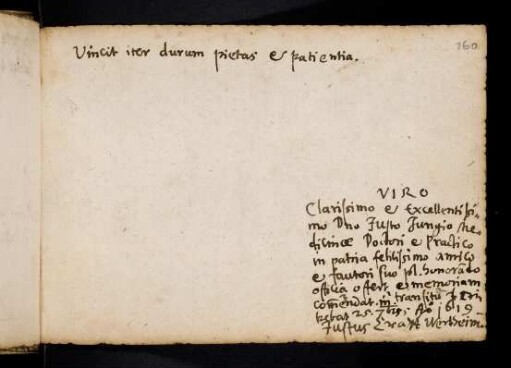 160
Vincit iter durum pietas & patientia.
VIRO
Clarissimo & Excellentissi-
mo Dno Justo Jungio Me-
dicinæ Doctori & Practico
in patria felicissimo amico
& fautori suo pl. honorando
officia offert & memoriam
commendat in transitu
25. 7bris. Aõ 1619
Justus Wertheim.